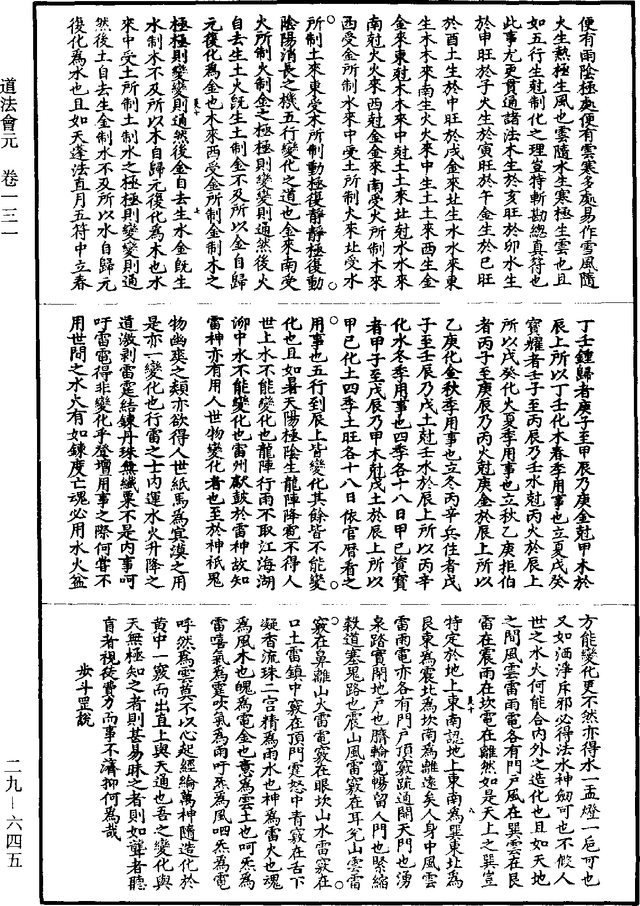 道法會元　卷一三一
便有雨陰極處便有雲寒多處易作雪風隨
火生熱極生風也雲隨水生寒極生雲也且
如五行生尅制化之理豈特斬勘總真符也
此事尤更貫通諸法木生於亥旺於卯水生
於申旺於子火生於寅旺於午金生於巳旺
於酉土生於申旺於戌金來北生水水來東
生木木來南生火火來中生土土來西生金
金來東尅木木來中尅土土來北尅水水來
南尅火火來西尅金金來南受火所制木來
西受金所制水來中受土所制火來北受水
所制土來東受木所制動極復靜靜極復動
陰陽消長之機五行變化之道也金來南受
火所制火制金之極極則變變則通然後火
自去生土火既生土制金不及所以金自歸
元復化為金也木來西受金所制金制木之
極極則變變則通然後金自去生水金既生
水制木不及所以木自歸元復化為木也水
來中受土所制土制水之極極則變變則通
然後土自去生金制水不及所以水自歸元
復化為水也且如天蓬法直月五符中立春
丁壬鍾歸者庚子至甲辰乃庚金尅甲木於
辰上所以丁壬化木春季用事也立夏戊癸
寶耀者壬子至丙辰乃壬水尅丙火於辰上
所以戊癸化火夏季用事也立秋乙庚拒伯
者丙子至庚辰乃丙火尅庚金於辰上所以
乙庚化金秋季用事也立冬丙辛兵住者戊
子至壬辰乃戊土尅壬水於辰上所以丙辛
化水冬季用事也四季各十八日甲己資寶
者甲子至戊辰乃甲木尅戊土於辰上所以
甲己化土四季土旺各十八日依官曆看之
用事也五行到辰上皆變化其餘皆不能變
化也且如暑天陽極陰生龍陣降雹不得人
世上水不能變化也龍陣行雨不取江海湖
泖中水不能變化也雷州獻鼓於雷神故知
雷神亦有用人世物變化者也至於神祇鬼
物幽爽之類亦欲得人世紙馬為冥漠之用
是亦一變化也行雷之士內運水火升降之
道激剥雷霆結鍊丹珠無纖粟不是內事呵
吁雷電得非變化乎登壇用事之際何嘗不
用世間之水火有如鍊度亡魂必用水火盆
方能變化更不然亦得水一盂燈一巵可也
又如洒淨斥邪必得法水神劍可也不假人
世之水火何能合內外之造化也且如天地
之間風雲雷雨電各有門戶風在巽雲在艮
雷在震雨在坎電在離然如是天上之巽豈
特定於地上東南認地上東南為巽東北為
艮東為震北為坎南為離遠矣人身中風雲
雷雨電亦各有門戶頂竅疏通開天門也湧
泉踏實閉地戶也臍輪寬暢留人門也緊縮
穀道塞鬼路也震山風雷竅在耳兌山雲雷
竅在鼻離山火雷電竅在眼坎山水雷竅在
口土雷鎮中竅在頂門霆怒中青竅在舌下
凝香流珠二宮精為雨水也神為雷火也魂
為風木也魄為電金也意為雲土也呵炁為
雷嘻氣為霆吹氣為雨吁炁為風呬炁為電
呼然為雲莫不以心起經綸萬神隨造化於
黄中一竅而出直上與天通也吾之變化與
天無極知之者則甚易昧之者則如聾者聽
盲者視徒費力而事不濟抑何為哉
步斗罡說
二九－六四五